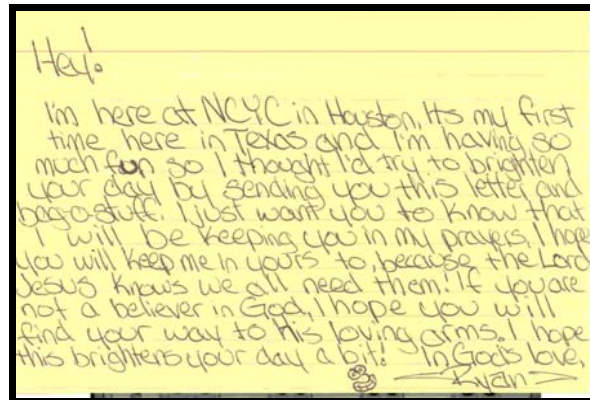 Hey!
I'm here at NCYC in Houston. Its my first
time here in Texas and I'm having so
much fun so I thought I'd try to brighten
your day by sending you this letter and
bag-o-stuff. I just want you to know that
I will be keeping you in my prayers. I hope
you will keep me in yours to, because the Lord
Jesus knows we all need them! If you are
not a believer in God, I hope you will
find your way to his loving arms. I hope
this brightens your day a bit! In God's love,
Ryan